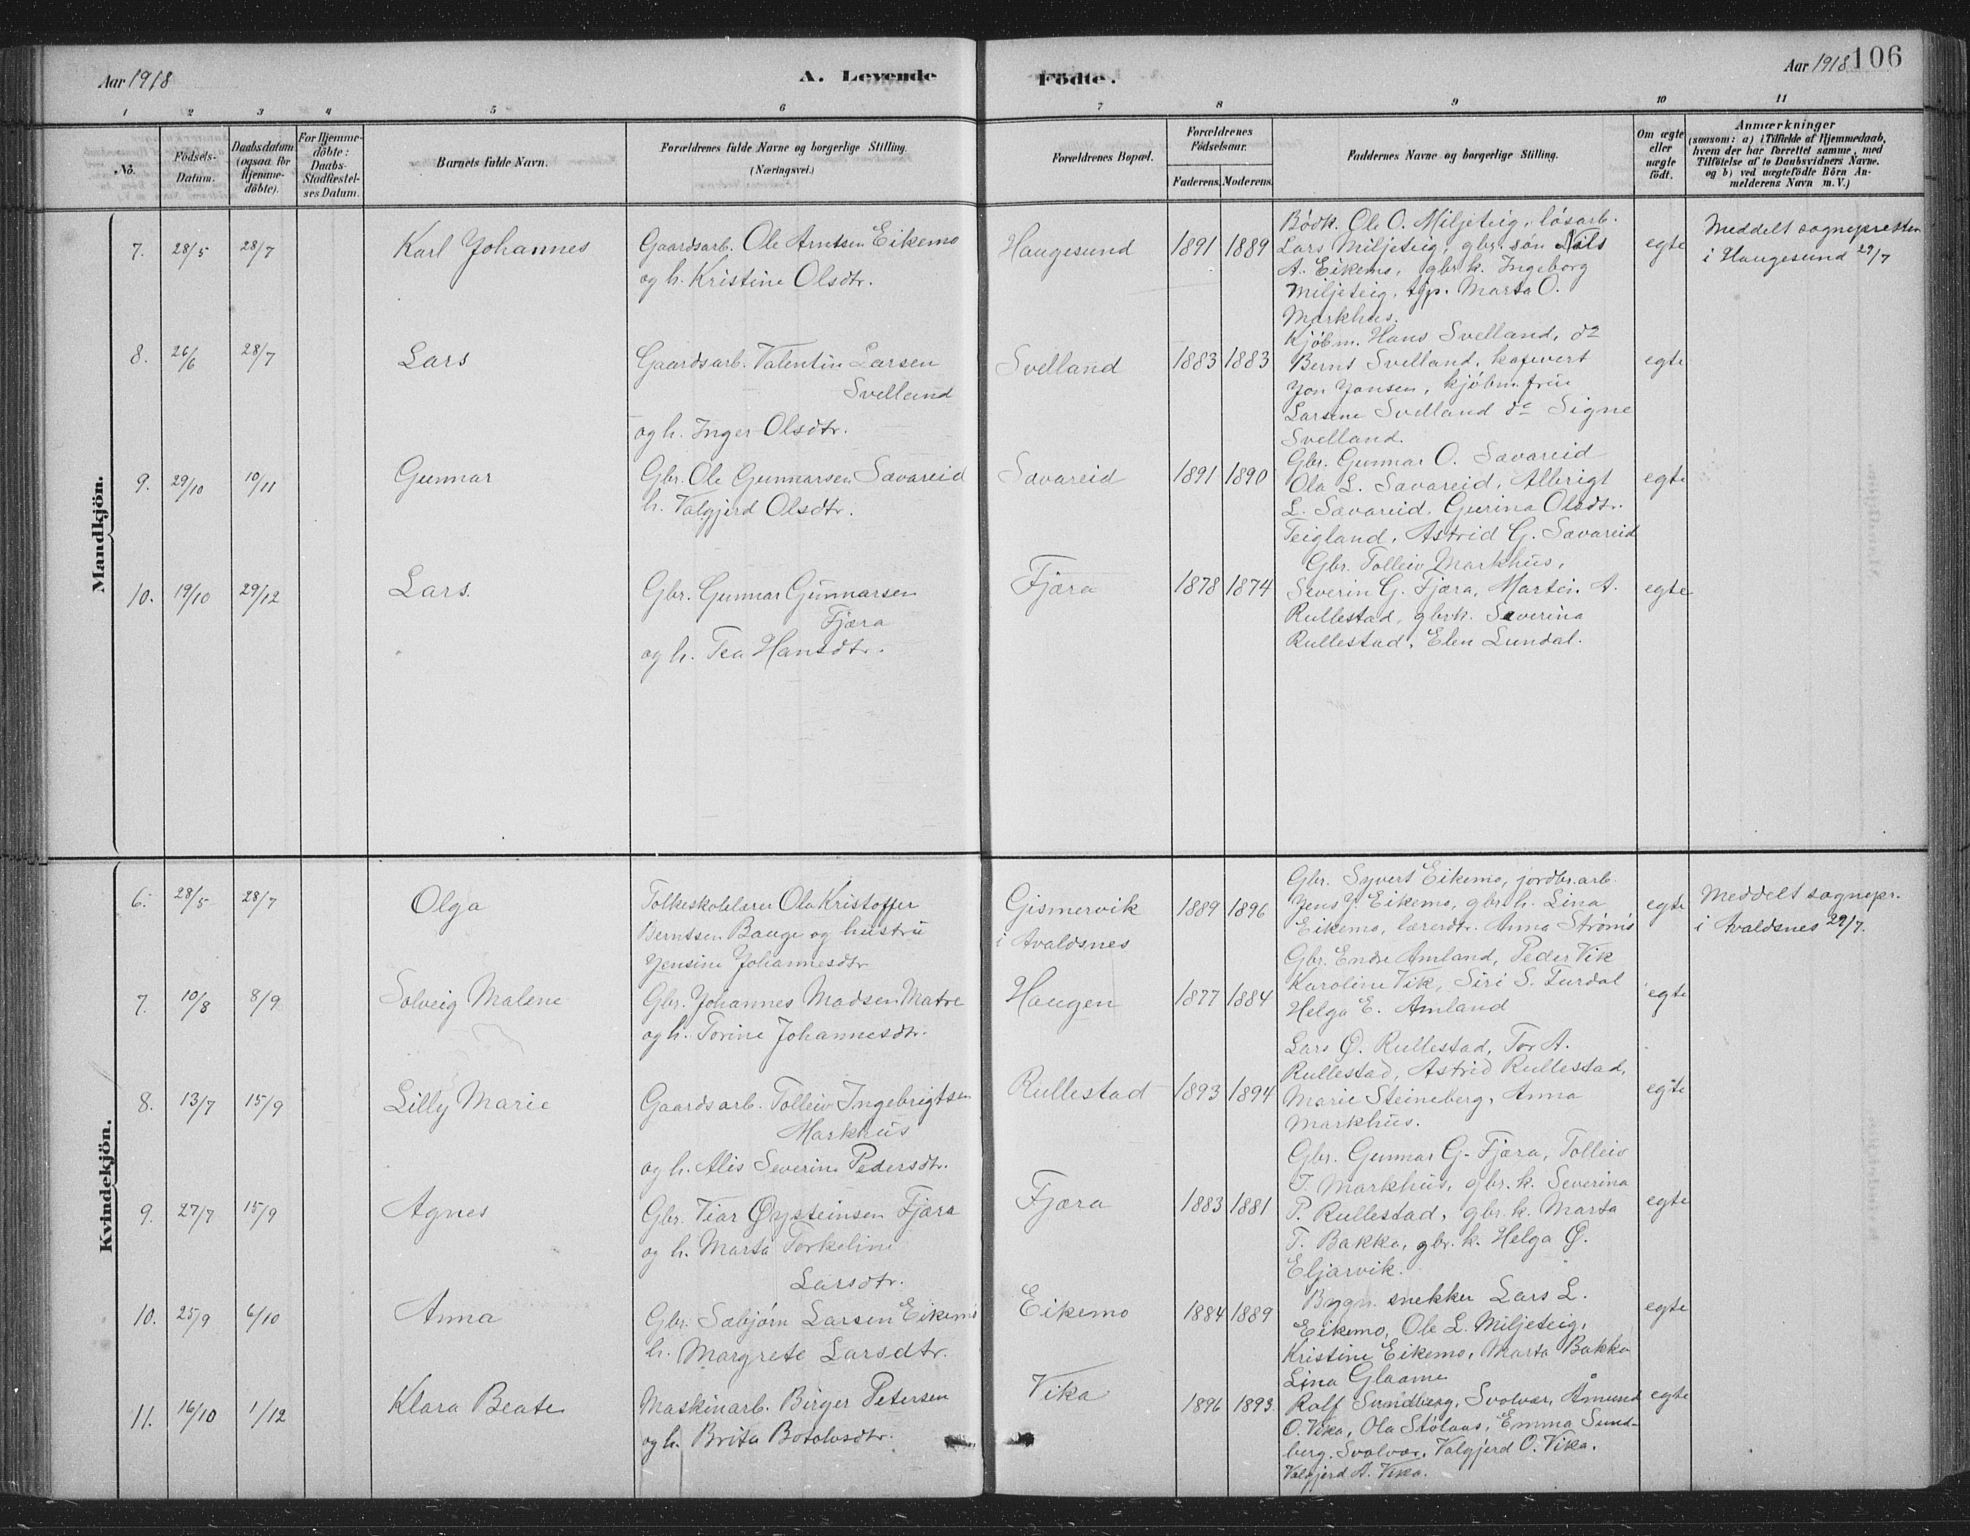 Aar 1918
A. Levende
Födte.
Aar 1918 106
1 2 3 4 5 6 7 8 9 10 11
No.
Födsels-Datum.
Daabsdatum (ogsaa for Hjemme-döbte).
For Hjemme-döbte: Daabs-Stadfæstel-ses Datum.
Barnets fulde Navn.
Forældrenes fulde Navne og borgerlige Stilling. (Næringsvei.)
Forældrenes Bopæl.
Forældrenes Födselsaar.
Faderens. Moderens.
Faddernes Navne og borgerlige Stilling.
Om ægte eller uægte födt.
Anmærkninger
(saasom: a) i Tilfælde af Hjemmedaab, hvem der har forrettet samme, med Tilföielse af to Daabsvidners Navne. og b) ved uægtefödte Börn An-melderens Navn m. V.)
Mandkjön.
7. 28/5 28/7 Karl Johannes
Gaardsarb. Ole Arntsen Eikemo
og h. Kristine Olsdtr.
Haugesund 1891 1889
Bödk. Ole O. Miljeteig, løsarb.
Lars Miljeteig, gbr. søn Nils
A. Eikemo, gbr.k. Ingeborg
Miljeteig, tjp. Marta O.
Markhus.
egte
Meddelt sognepresten
i Haugesund 29/7
8. 26/6 28/7 Lars
Gaardsarb. Valentin Larsen
Svelland
og h. Inger Olsdtr.
Svelland 1883 1883
Kjöbm. Hans Svelland, do
Bernt Svelland,
Jon Jansen, kjöbm. frue
Svelland do Signe
Svelland.
egte
9. 29/10 10/11 Gunnar
Gbr. Ole Gunnarsen Sævareid
h. Valgjerd Olsdtr.
Sævareid 1891 1890
Gbr. Gunnar O. Sævareid
Ola L. Sævareid, Albrigt
L. Sævareid, Gurina Olsdtr.
Teigland, Astrid G. Sævareid
egte
10. 19/10 29/12 Lars.
Gbr. Gunnar Gunnarsen
Fjæra
og h. Tea Hansdtr.
Fjæra 1878 1874
Gbr. Tolleiv Markhus,
Severin G. Fjæra, Martin A.
Rullestad, gbrk. Severina
Rullestad, Elen Lundal.
egte
Kvindekjön.
6. 28/5 28/7 Olga
Folkeskolelærer Ola Kristoffer
Berntsen Bauge og hustru
Jensine Johannesdtr
Gismervik
i Avaldsnes 1889 1896
Gbr. Syvert Eikemo, jordbr.arb.
Jens J. Eikemo, gbr. h. Lina
Eikemo, lærerdtr. Anna Strøms
egte
Meddelt sognepr.
i Avaldsnes 29/7.
7. 10/8 8/9 Solveig Malene
Gbr. Johannes Madsen Matre
og h. Torine Johannesdtr.
Haugen 1877 1884
Gbr. Endre Amland, Peder Vik
Karoline Vik, Siri S. Furdal
Helga E. Amland
egte
8. 13/7 15/9 Lilly Marie
Gaardsarb. Tolleiv Ingebrigtsen
Markhus
og h. Alis Severine Pedersdtr.
Rullestad 1893 1894
Lars Ø. Rullestad, Tor A.
Rullestad, Astrid Rullestad,
Marie Steineberg, Anna
Markhus.
egte
9. 27/7 15/9 Agnes
Gbr. Viar Øysteinsen Fjæra
og h. Marta Torkeline
Larsdtr.
Fjæra 1883 1881
Gbr. Gunnar G. Fjæra, Tolleiv
T. Markhus, gbr. k. Severina
P. Rullestad, gbr. k. Marta
T. Bakka, gbr. k. Helga Ø.
Eljarvik.
egte
10. 25/9 6/10 Anna
Gbr. Sæbjørn Larsen Eikemo
h. Margrete Larsdtr.
Eikemo 1884 1889
Bygn. snekker Lars L.
Eikemo, Ole L. Miljeteig,
Kristine Eikemo, Marta Bakka
Lina Glaame
egte
11. 16/10 1/12 Klara Beate
Maskinarb. Birger Petersen
og h. Brita Botolvsdtr.
Vika 1896 1893
Rolf Sundberg, Svolvær, Åmund
O. Vika, Ola Stølaas, Emma Sund-
berg, Svolvær, Valgjerd O. Vika.
Valgjerd A. Vika.
egte